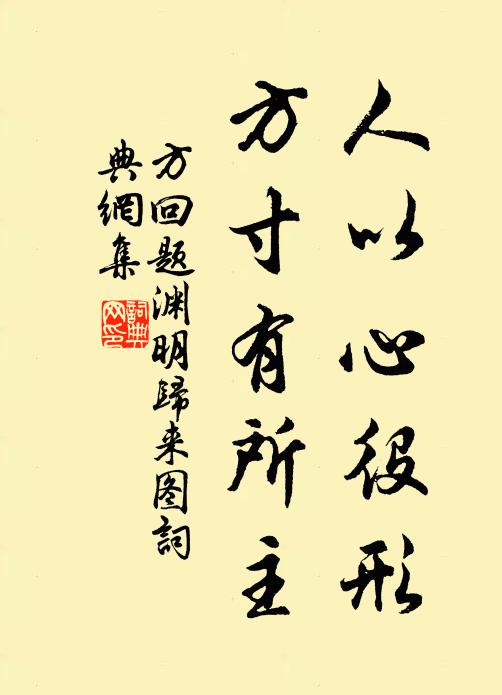 人以心役形
方寸有所主
方回题渊明歸来图詞
典網集
詞典
网印